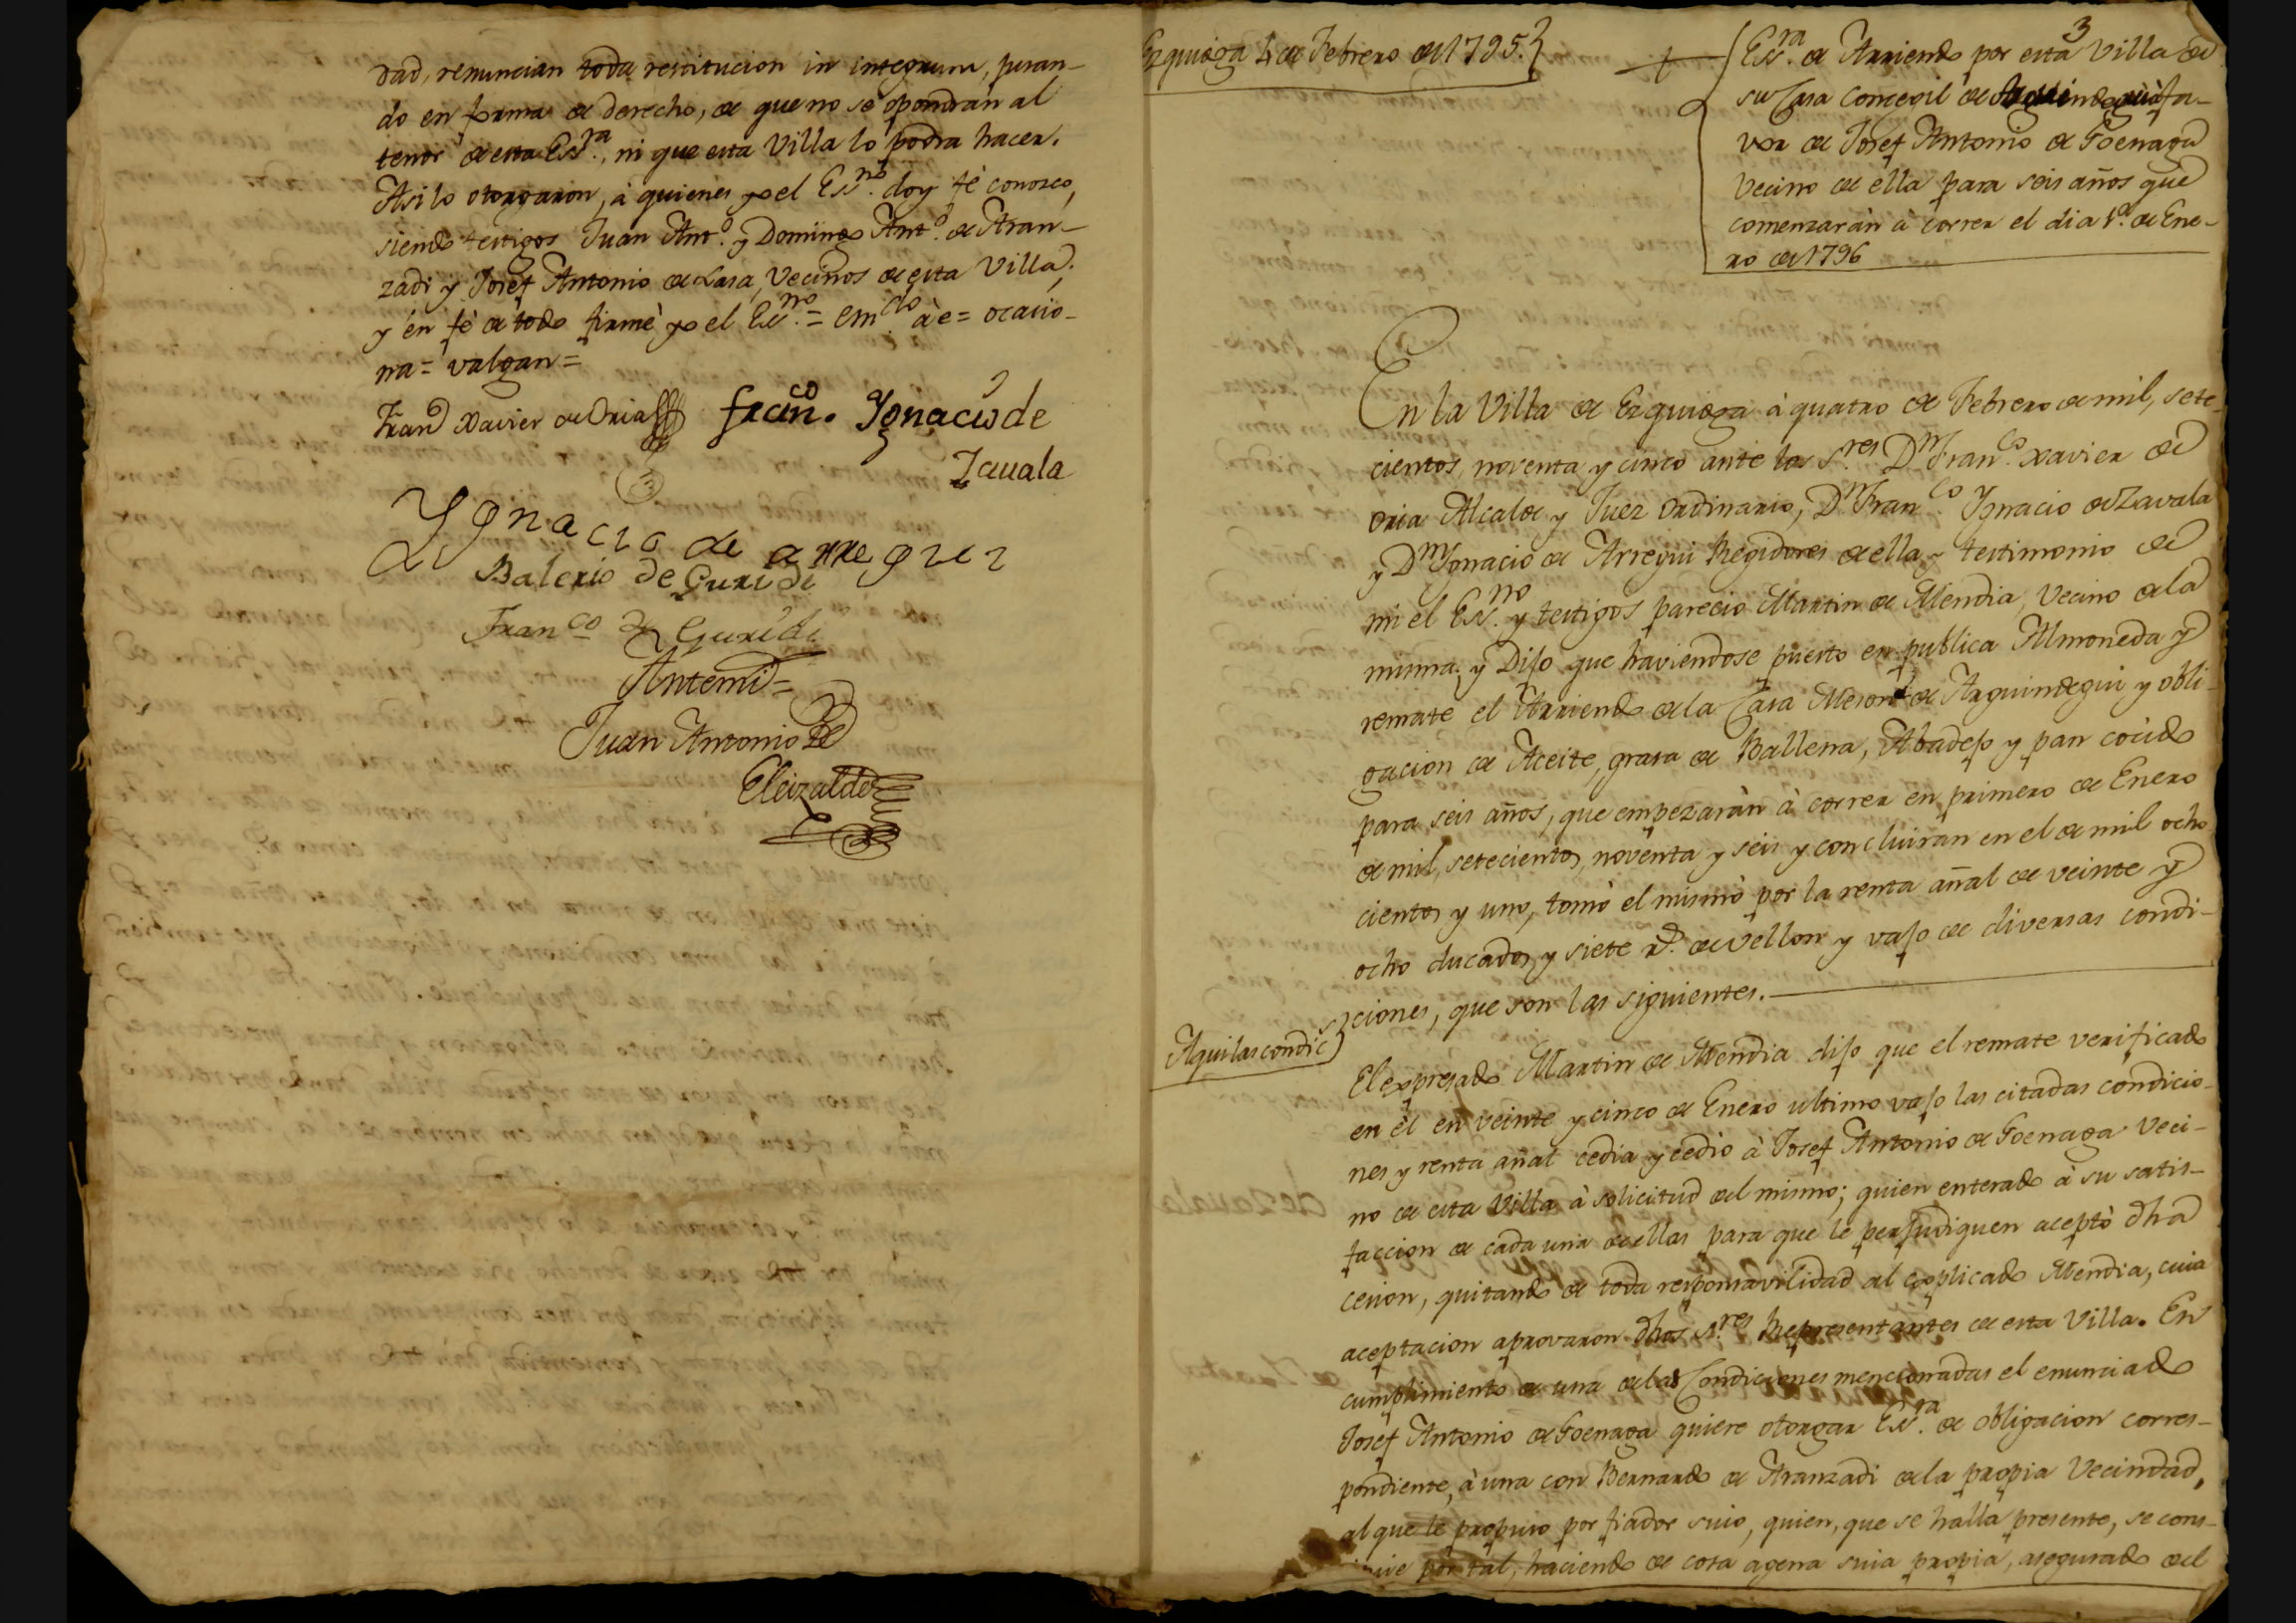 dad, renuncian toda restitucion in integrum, juran-
do en forma de derecho, de que no se opondran al
tenor de esta Essra, ni que esta Villa lo podra hacer.
Asi lo otorgaron, à quienes yo el Essno. doy fè conozco,
siendo testigos Juan Anto. y Domingo Anto. de Aran-
zadi y Josef Antonio de Lasa, Vecinos de esta Villa;
y en fè de todo firmè yo el Essno. = emdo à e = ocasio-
na = valgan =
Frano Xavier de Oria
francо. Ygnacio de
Zauala
Ygnacio de arregui
Balerio de Guridi
Franco de Guridi
Antemi =
Juan Antonio de
Eleizalde
Ezquioga 4 de Febrero de 1795.
3
Essra. de Arriendo por esta Villa de
su Casa Concegil de à fa-
vor de Josef Antonio de Goenaga
Vecino de ella para seis años que
comenzaràn à correr el dia 1o. de Ene-
ro de 1796
En la Villa de Ezquioga à quatro de Febrero de mil, sete-
cientos, noventa y cinco ante los Sres. Dn. Franco. Xavier de
Oria Alcalde y Juez Ordinario, Dn. Franco. Ygnacio de Zavala
y Dn. Ygnacio de Arregui Regidores de ella, y testimonio de
mi el Essno. y testigos parecio Martin de Mendia, Vecino de la
misma; y Dijo que haviendose puesto en publica Almoneda y
remate el Arriendo de la Casa Meson de Arguindegui y obli-
gacion de Aceite, grasa de Ballena, Abadejo y pan cocido
para seis años, que empezaràn à correr en primero de Enero
de mil, setecientos, noventa y seis y concluiran en el de mil ocho
cientos y uno, tomò el mismo por la renta añal de veinte y
ocho ducados y siete rs. de vellon y vajo de diversas condi-
ciones, que son las siguientes.
Aqui las condics
El expresado Martin de Mendia dijo que el remate verificado
en èl en veinte y cinco de Enero ultimo vajo las citadas condicio-
nes y renta añal cedia y cediò à Josef Antonio de Goenaga Veci-
no de esta Villa à solicitud del mismo; quien enterado à su satis-
faccion de cada una de ellas para que le perjudiquen aceptò dha
cesion, quitando de toda responsavilidad al explicado Mendia, cuia
aceptacion aprovaron dhos Sres. Representantes de esta Villa. En
cumplimiento de una de las Condiciones mencionadas el enunciado
Josef Antonio de Goenaga quiere otorgar Essra. de obligacion corres-
pondiente, à una con Bernardo de Aranzadi de la propia Vecindad,
al que le propuso por fiador suio, quien, que se halla presente, se cons-
por tal, haciendo de cosa agena suia propia, asegurado del